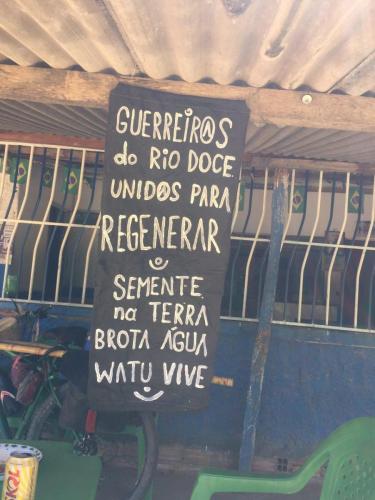 GUERREIR@S
do RIO DOCE
UNID@S PARA
REGENERAR
SEMENTE
na TERRA
BROTA ÁGUA
WATU VIVE